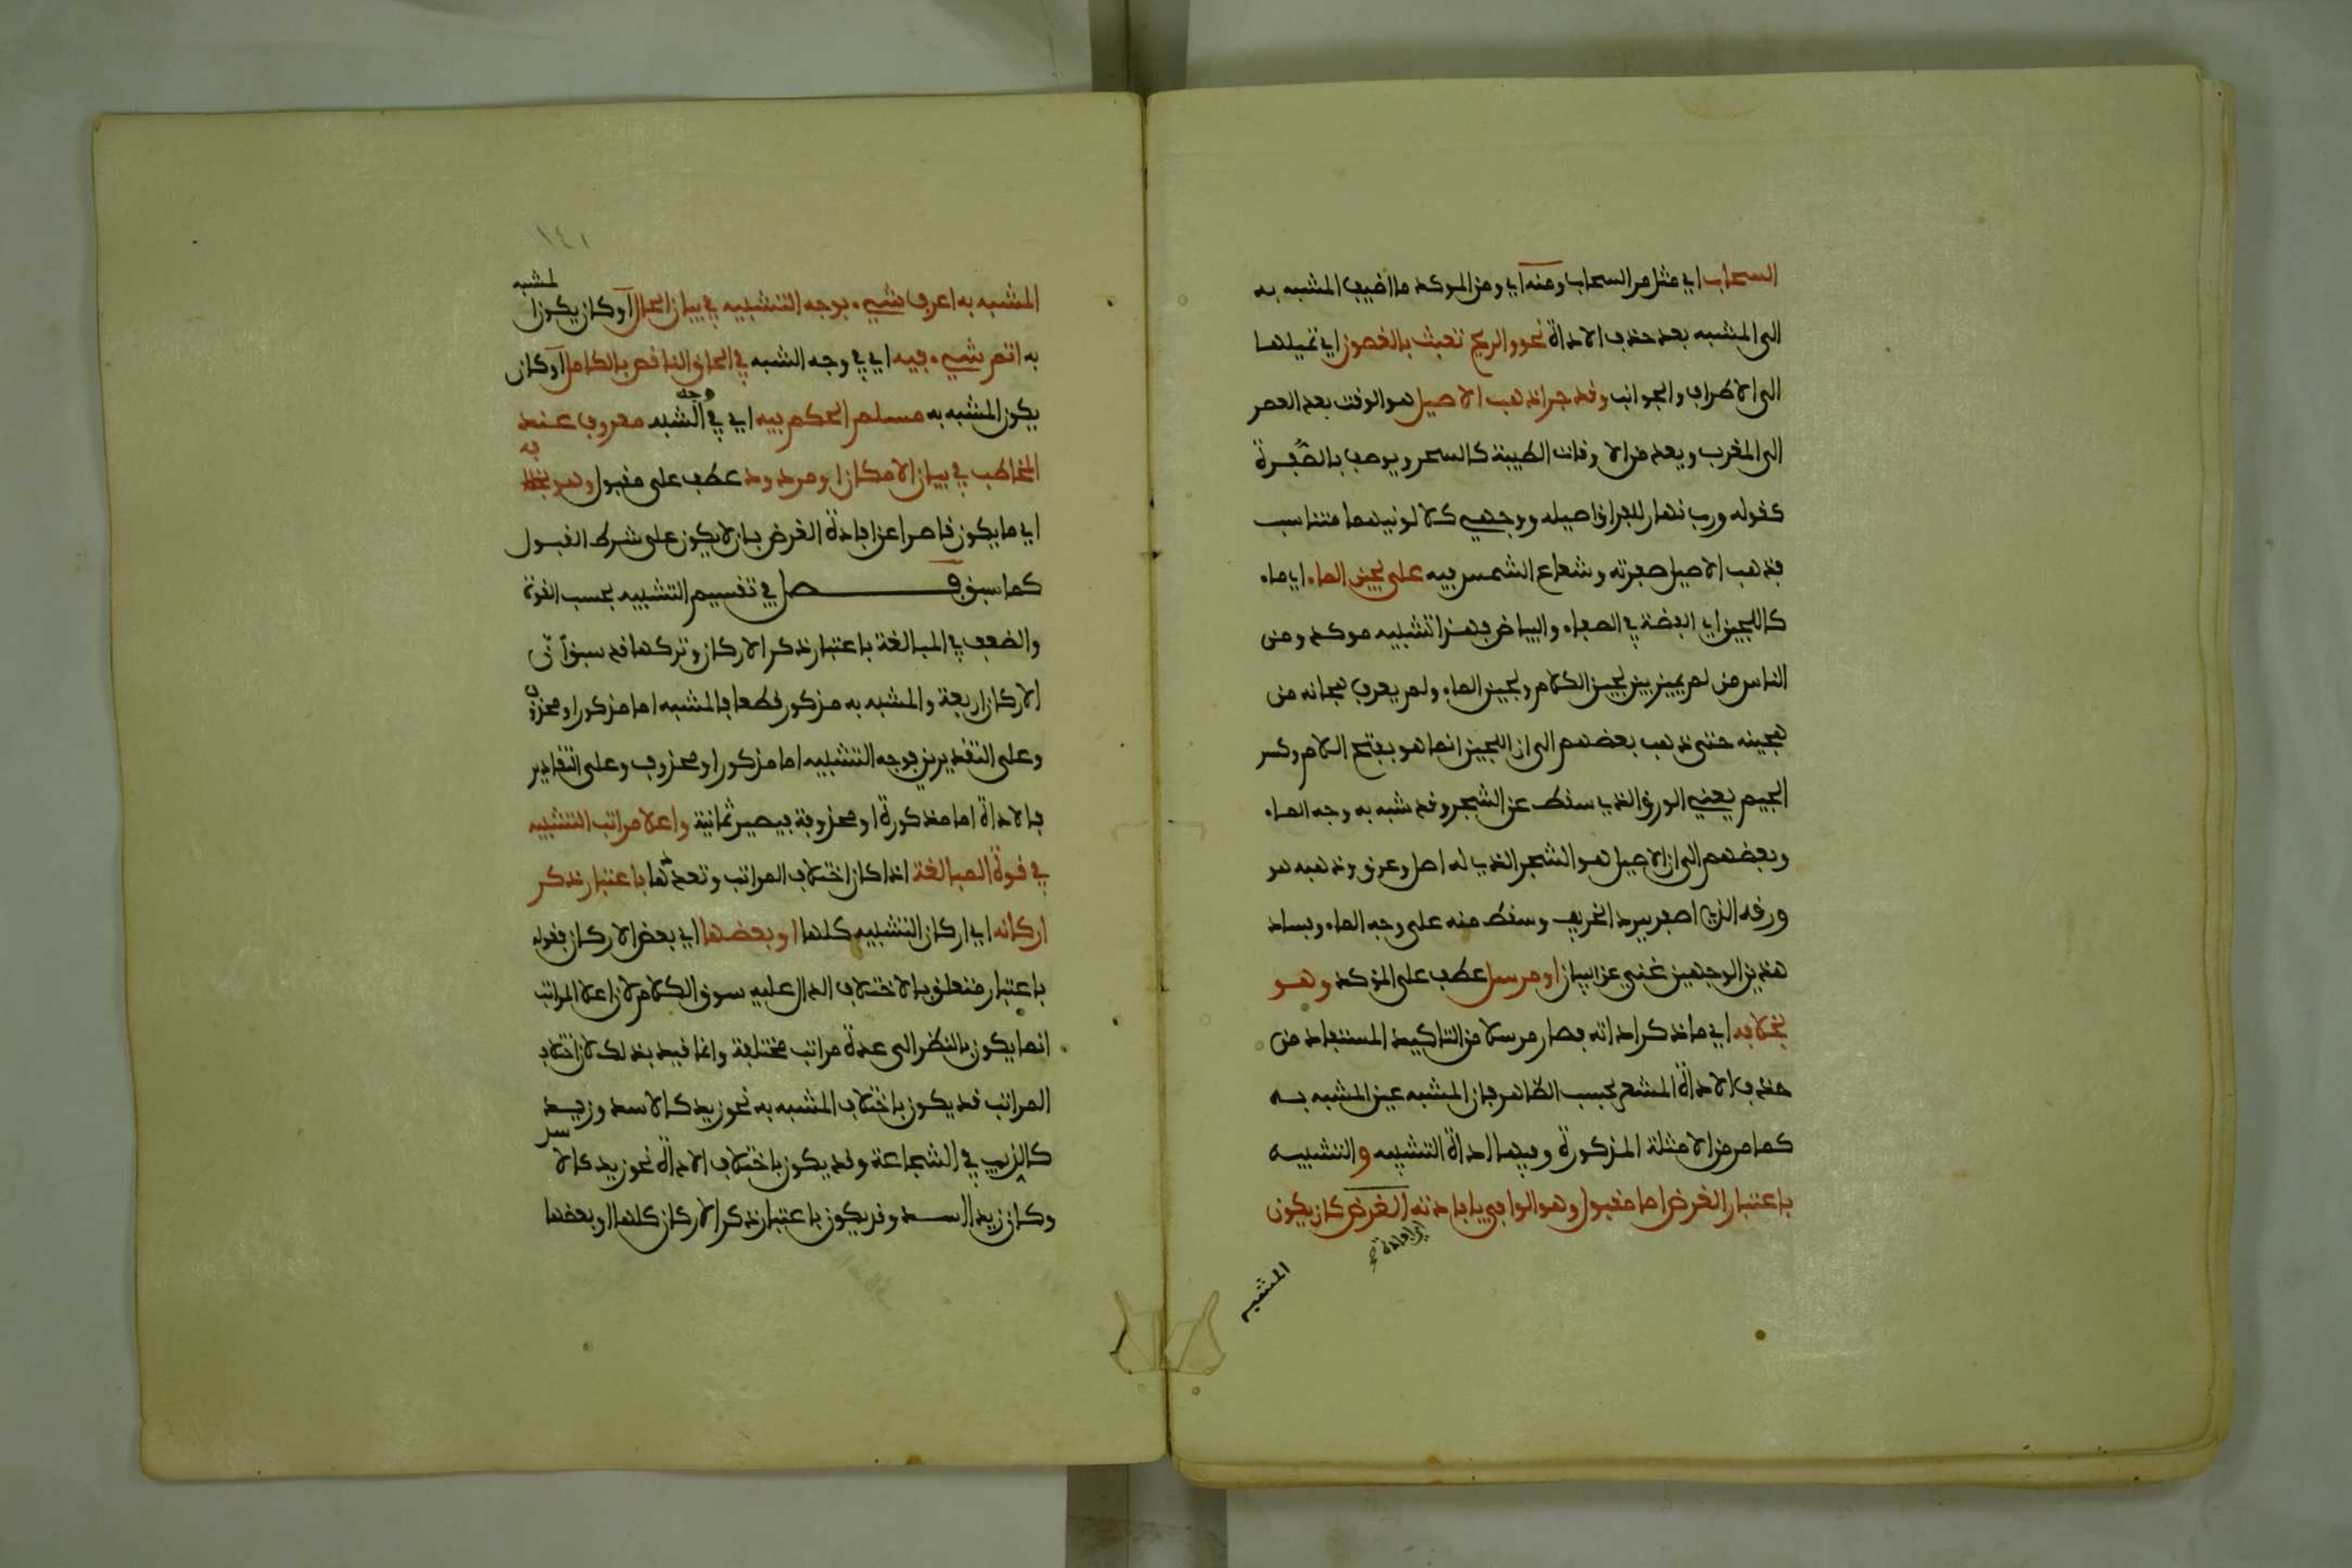 السحاب اي مثل مر السحاب ومنه اي ومن الموكد ما اضيف المشبه به
الى المشبه بعد حذف الاداة نحو والريح تعبث بالغصون اي تميلها
الى الاطراف والجوانب وقد جرا ذهب الاصيل هو الوقت بعد العصر
الى المغرب ويعد من الاوقات الطيبة كالسحر ويوصف بالصفرة
كقوله ورب نهار للفراق اصيله ووجهي كلا لونيهما متناسب
فذهب الاصيل صفرته وشعاع الشمس فيه على لجين الماء اي ماء
كاللجين اي الفضة في الصفاء والبياض فهذا تشبيه موكد ومن
الناس من لم يميز بين لجين الكلام ولجين الماء ولم يعرف هجانه من
هجينه حتى ذهب بعضهم الى ان اللجين انما هو بفتح اللام وكسر
الجيم يعني الورق الذي سقط عن الشجر وقد شبه به وجه الماء
وبعضهم الى ان الاصيل هو الشجر الذي له اصل وعرق وذهبه هو
ورقه الذي اصفر ببرد الخريف وسقط منه على وجه الماء وفساد
هذين الوجهين غني عن البيان او مرسل عطف على الموكد وهو
بخلافه اي ما ذكر اداته فصار مرسلا من التاكيد المستفاد من
حذف الاداة المشعر بحسب الظاهر بان المشبه عين المشبه به
كما مر من الامثلة المذكورة وفيها اداة التشبيه والتشبيه
باعتبار الغرض اما مقبول وهو الوافي بافادته الغرض كان يكون
اي افادة
المشبه
١٤١
المشبه به اعرف شيء بوجه التشبيه في بيان الحال او كان يكون المشبه
به اتم شيء فيه اي في وجه الشبه في الحاق الناقص بالكامل او كان
يكون المشبه به مسلم الحكم فيه اي في وجه الشبه معروف عند
المخاطب في بيان الامكان او مردود عطف على مقبول وهو بخلافه
اي ما يكون قاصرا عن افادة الغرض بان لا يكون على شرط القبول
كما سبق فصل في تقسيم التشبيه بحسب القوة
والضعف في المبالغة باعتبار ذكر الاركان وتركها قد سبق ان
الاركان اربعة والمشبه به مذكور قطعا فالمشبه اما مذكور او محذوف
وعلى التقديرين فوجه التشبيه اما مذكور او محذوف وعلى التقادير
فالاداة اما مذكورة او محذوفة فيصير ثمانية واعلا مراتب التشبيه
في قوة المبالغة اذا كان اختلاف المراتب وتعددها باعتبار ذكر
اركانه اي اركان التشبيه كلها او بعضها اي بعض الاركان فقوله
باعتبار متعلق بالاختلاف الدال عليه سوق الكلام لان اعلا المراتب
انما يكون بالنظر الى عدة مراتب مختلفة وانما قيد بذلك لان اختلاف
المراتب قد يكون باختلاف المشبه به نحو زيد كالاسد وزيد
كالذيب في الشجاعة وقد يكون باختلاف الاداة نحو زيد كالاسد
وكان زيد الاسد وقد يكون باعتبار ذكر الاركان كلها او بعضها